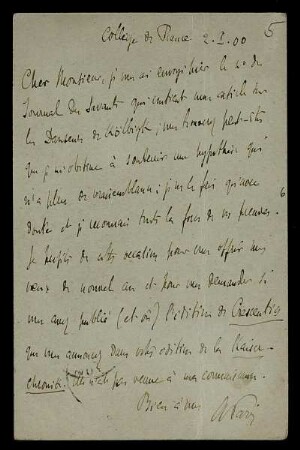 Collège de France 2.1.00 5
Cher Monsieur, je vous ai envoyé hier le no du
Journal des Savants qui contient mon article sur
les Danseurs de Kölbigk; vous trouverez peut-être
que je m'obstine à soutenir une hypothèse qui
n'a plus de vraisemblance; je ne le fais qu'avec
doute et je reconnais toute la force de vos preuves.
Je profite de cette occasion pour vous offrir mes
vœux de nouvel an et pour vous demander si
vous avez publié (et où) l'édition de Crescentia
que vous annoncez dans votre édition de la Kaiser-
chronik. Elle n'est pas venue à ma connaissance.
Bien à vous
G Paris